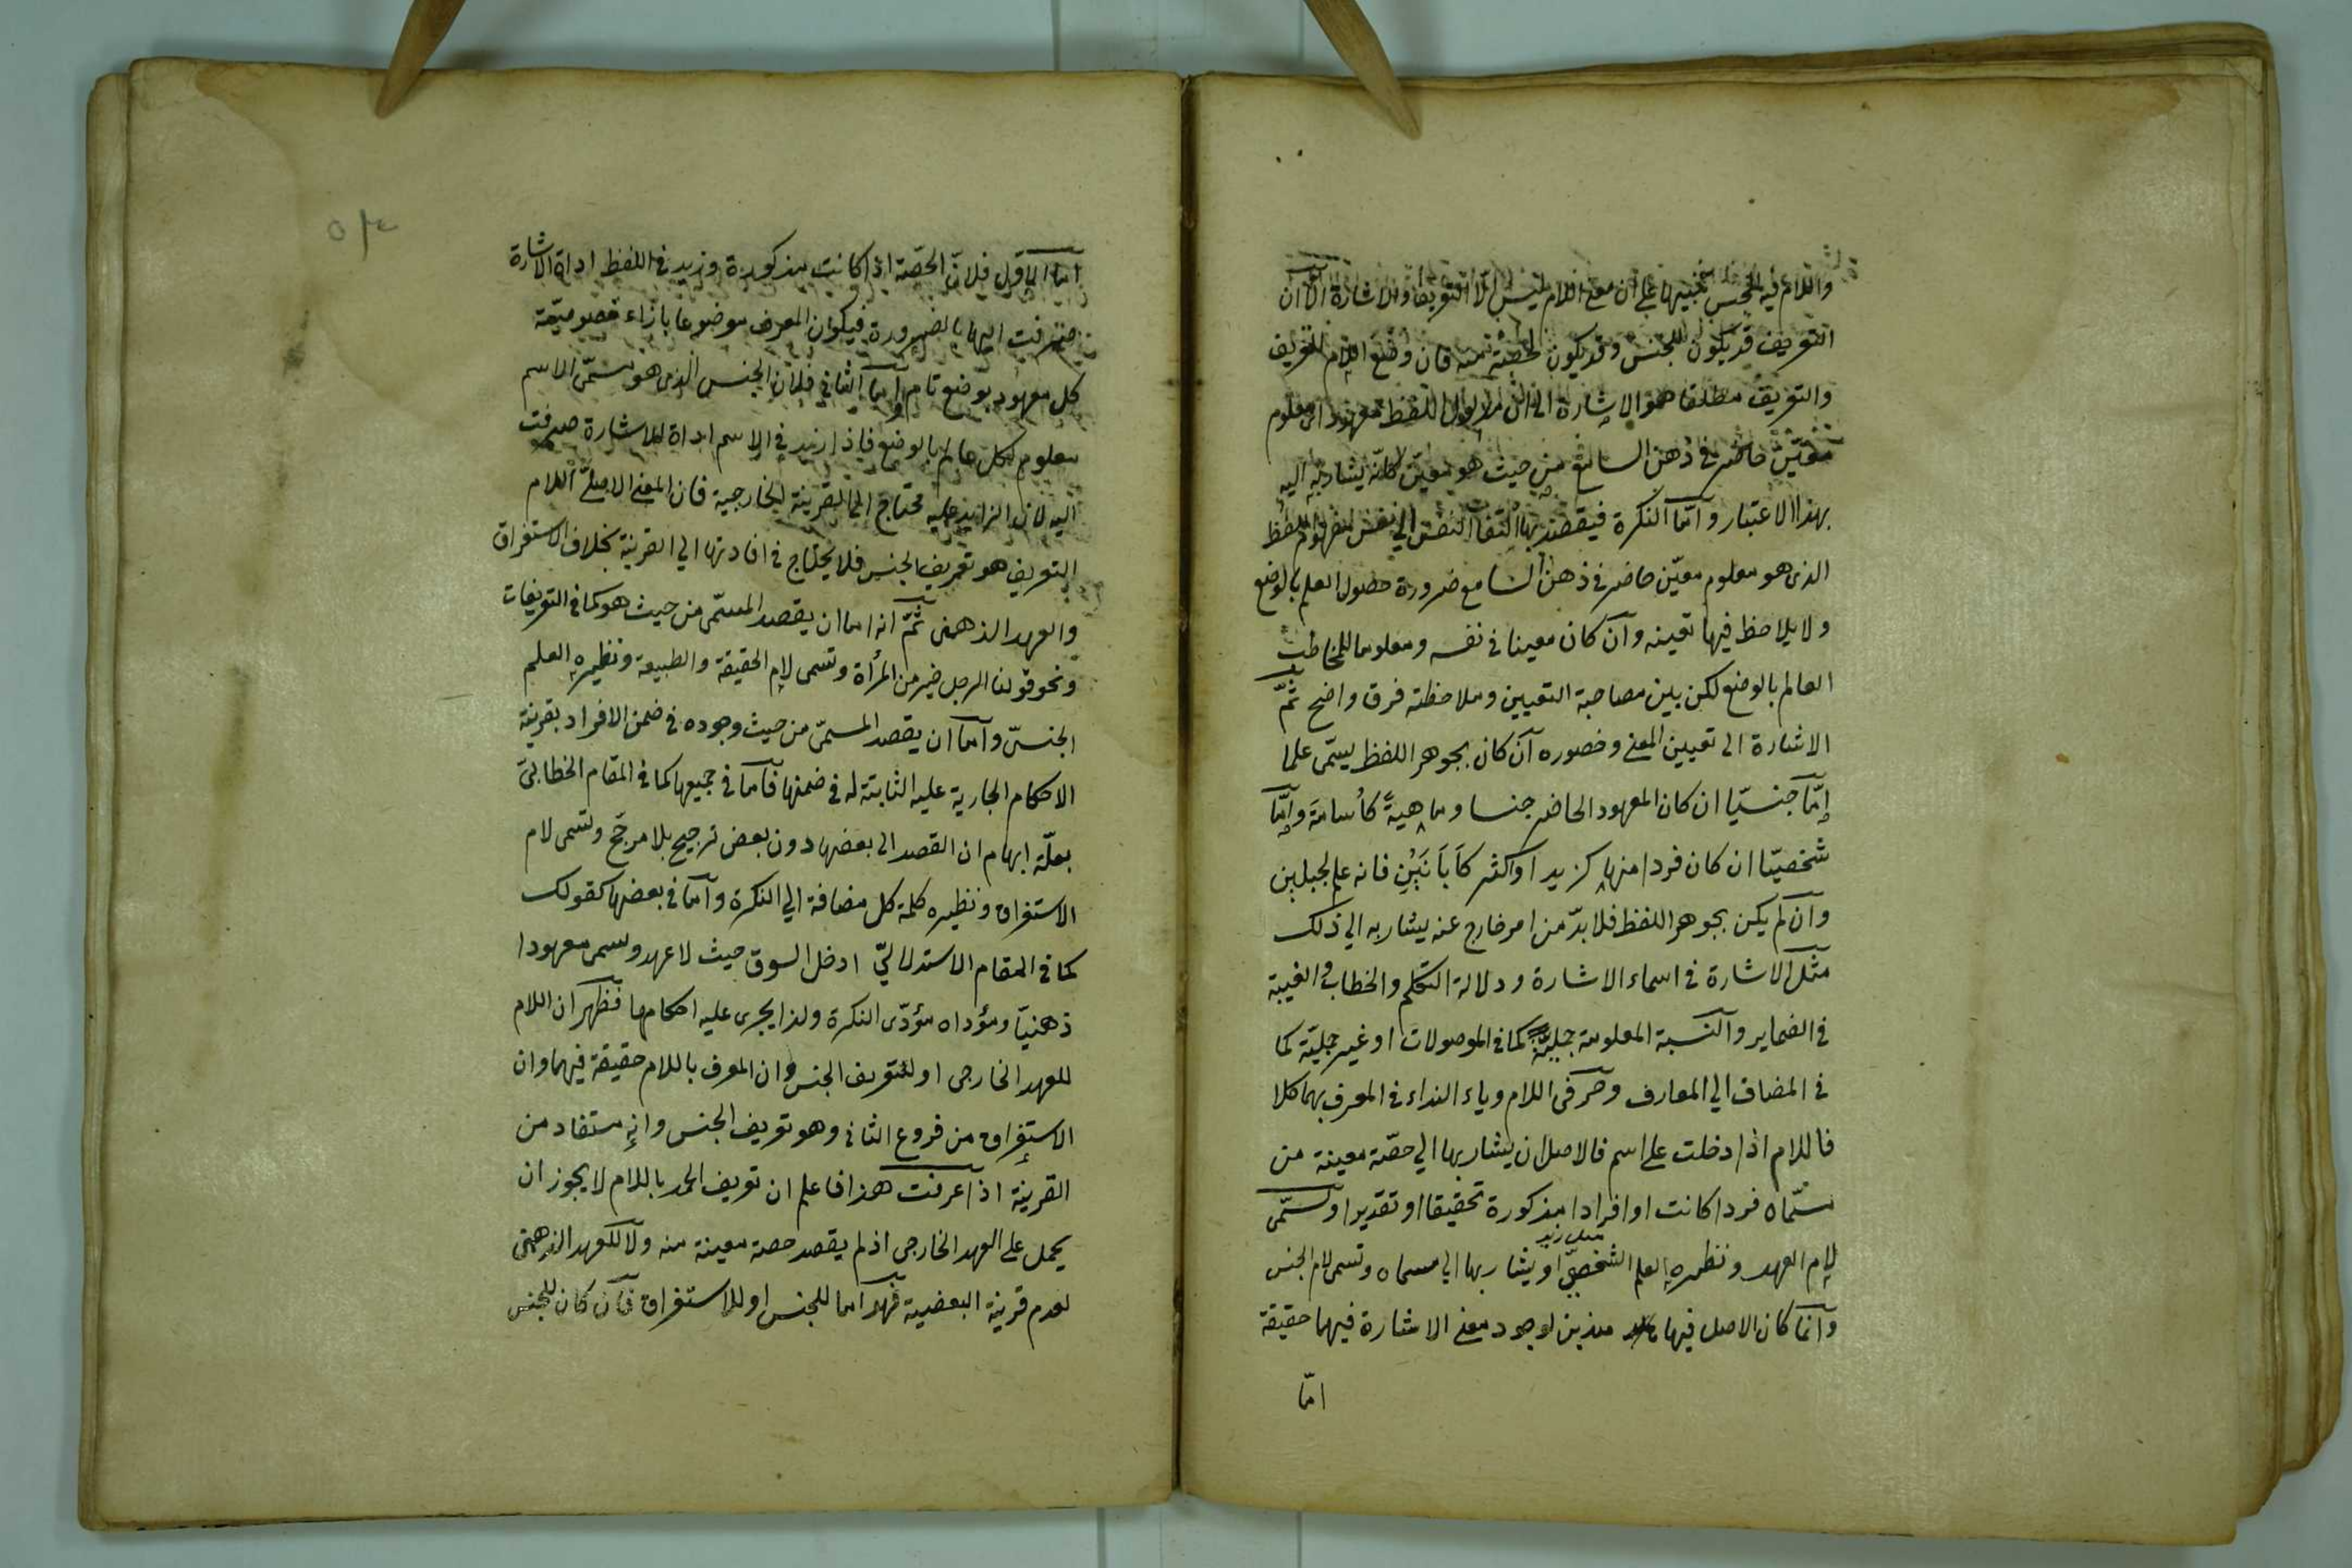 واللام فيه للجنس تنبيها على ان معنى اللام ليس الّا التعريف والاشارة الّا ان
التعريف قد يكون للجنس وقد يكون لحصّة منه فان وضع اللام للتعريف
والتعريف مطلقا هو الاشارة الى ان مدلول اللفظ معهود اى معلوم
معيّن حاضر فى ذهن السامع من حيث هو معيّن كانّه يشار به اليه
بهذا الاعتبار وامّا النكرة فيقصد بها التفات النفس الى نفس مفهوم اللفظ
الذى هو معلوم معيّن حاضر فى ذهن السامع ضرورة حصول العلم بالوضع
ولا يلاحظ فيها تعينه وان كان معينا فى نفسه ومعلوما للمخاطب
العالم بالوضع لكن بين مصاحبة التعيين وملاحظته فرق واضح ثمّ
الاشارة الى تعيين المعنى وحضوره ان كان بجوهر اللفظ يسمّى علما
إمّا جنسيّا ان كان المعهود الحاضر جنسا وماهيةً كأسامة وإمّا
شخصيّا ان كان فردا منها كزيد او اكثر كَأَبَانَيْنِ فانه علم لجبلين
وان لم يكن بجوهر اللفظ فلا بدّ من امر خارج عنه يشار به الى ذلك
مثل الاشارة فى اسماء الاشارة ودلالة التكلّم والخطاب والغيبة
فى الضماير والنسبة المعلومة جمليّة كما فى الموصولات او غير جمليّة كما
فى المضاف الى المعارف وحرفى اللام وياء النداء فى المعرف بهما كلا
فاللام اذا دخلت على اسم فالاصل ان يشار بها الى حصّة معينة من
مسمّاه فردا كانت او افرادا مذكورة تحقيقا او تقديرا وتسمّى
لام العهد ونظيره العلم الشخصىّ او يشار بها الى مسماه وتسمى لام الجنس
مثل زيد
وانما كان الاصل فيها هذين لوجود معنى الاشارة فيهما حقيقة
امّا
اما الاول فلانّ الحصّة اذا كانت مذكورة وزيد فى اللفظ اداة الاشارة
صرفت اليها بالضرورة فيكون المعرف موضوعا بازاء خصوصيّة
كل معهود بوضع تام واما الثانى فلان الجنس الذى هو مسمّى الاسم
معلوم لكل عالم بالوضع فاذا زيد فى الاسم اداة للاشارة صرفت
اليه لان الزايد عليه محتاج الى القرينة الخارجية فان المعنى الاصلىّ للام
التعريف هو تعريف الجنس فلا يحتاج فى افادتها الى القرينة بخلاف الاستغراق
والعهد الذهنى ثمّ انه اما ان يقصد المسمّى من حيث هو كما فى التعريفات
ونحو قولنا الرجل خير من المرأة وتسمى لام الحقيقة والطبيعة ونظيره العلم
الجنسىّ وامّا ان يقصد المسمّى من حيث وجوده فى ضمن الافراد بقرينة
الاحكام الجارية عليه الثابتة له فى ضمنها فامّا فى جميعها كما فى المقام الخطابىّ
بعلّة ابهام ان القصد الى بعضها دون بعض ترجيح بلا مرجّح وتسمى لام
الاستغراق ونظيره كلمة كل مضافة الى النكرة وامّا فى بعضها كقولك
كما فى المقام الاستدلالىّ ادخل السوق حيث لا عهد ويسمى معهودا
ذهنيّا ومؤداه مؤدّى النكرة ولذا يجرى عليه احكامها فظهر ان اللام
للعهد الخارجى او لتعريف الجنس وان المعرف باللام حقيقة فيهما وان
الاستغراق من فروع الثانى وهو تعريف الجنس وانه مستفاد من
القرينة اذا عرفت هذا فاعلم ان تعريف الحمد باللام لا يجوز ان
يحمل على العهد الخارجى اذ لم يقصد حصة معينة منه ولا للعهد الذهنى
لعدم قرينة البعضية فهو اما للجنس او للاستغراق فان كان للجنس